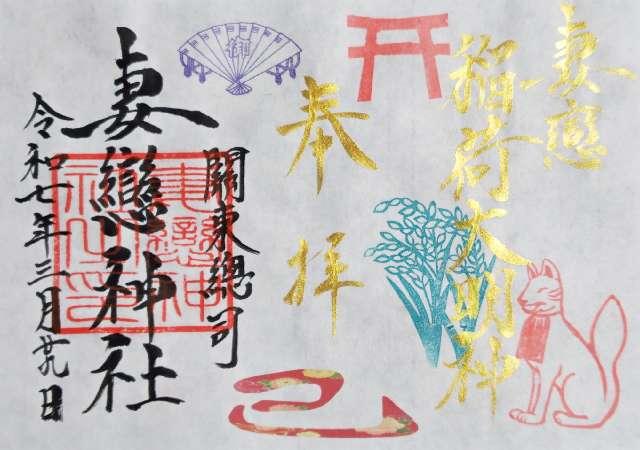 妻戀
稲荷大明神
奉拝
關東總司
妻戀神社
令和七年三月廿九日
巳